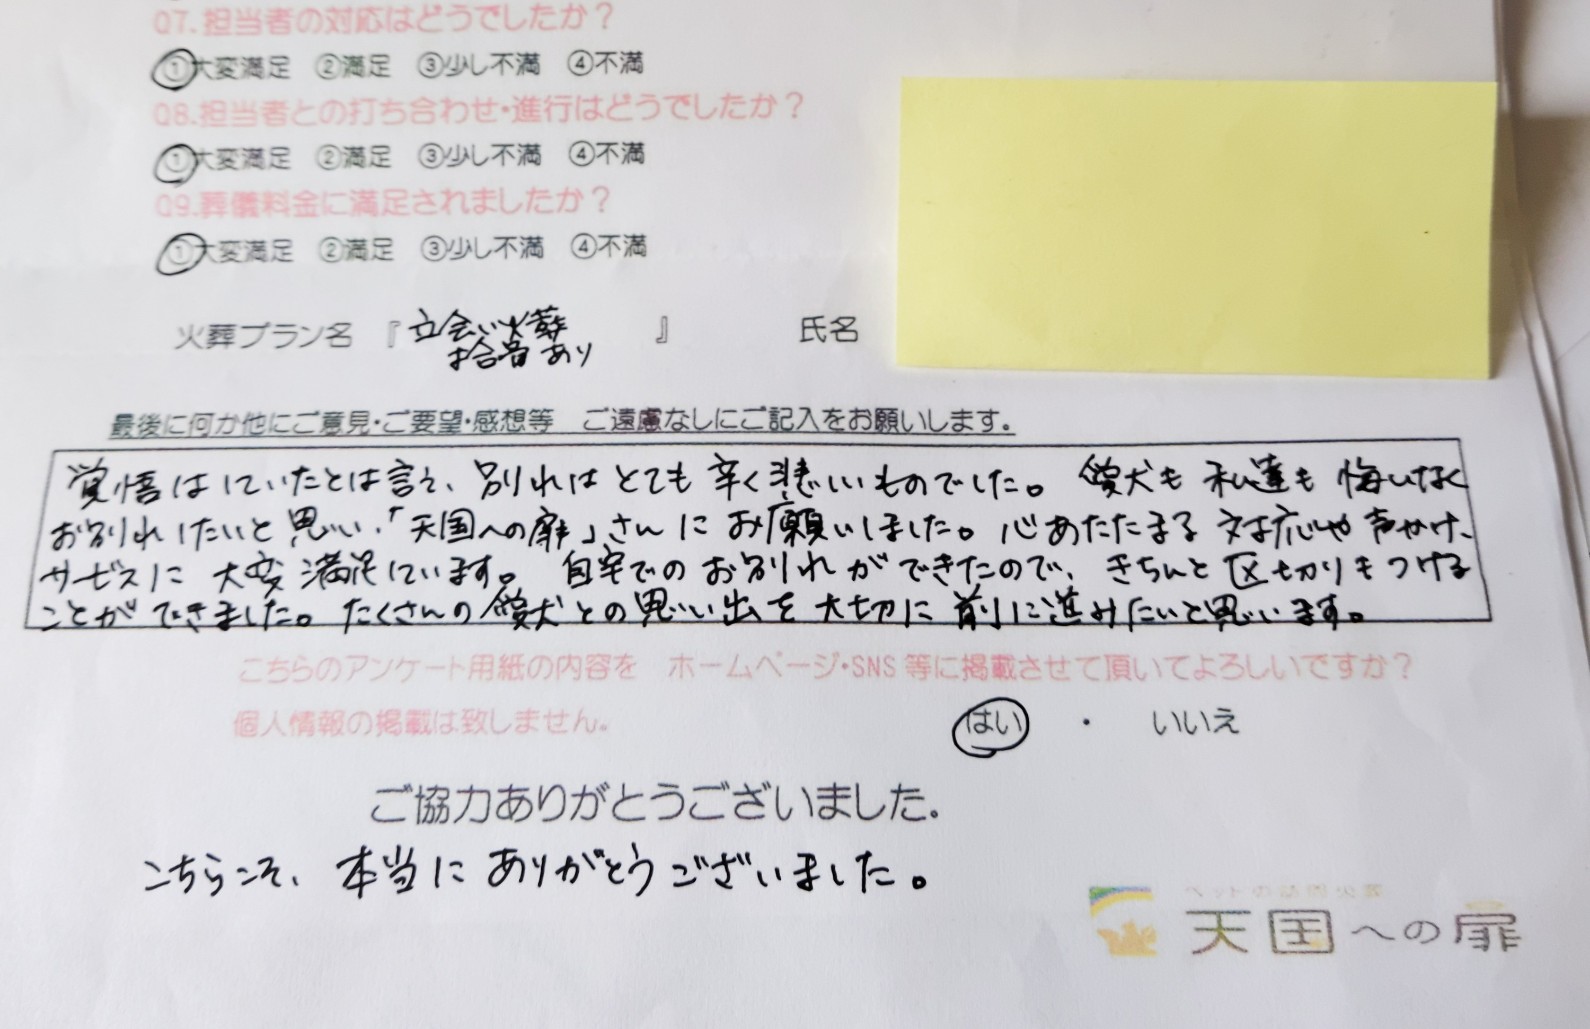 Q7.担当者の対応はどうでしたか？
①大変満足 ②満足 ③少し不満 ④不満
Q8.担当者との打ち合わせ・進行はどうでしたか？
①大変満足 ②満足 ③少し不満 ④不満
Q9.葬儀料金に満足されましたか？
①大変満足 ②満足 ③少し不満 ④不満
火葬プラン名 『立会い火葬 拾骨あり』 氏名
最後に何か他にご意見・ご要望・感想等 ご遠慮なしにご記入をお願いします。
覚悟はしていたとは言え、別れはとても辛く悲しいものでした。愛犬も私達も悔いなく
お別れしたいと思い、「天国への扉」さんにお願いしました。心あたたまる対応や声かけ、
サービスに大変満足しています。自宅でのお別れができたので、きちんと区切りをつける
ことができました。たくさんの愛犬との思い出を大切に前に進みたいと思います。
こちらのアンケート用紙の内容を ホームページ・SNS等に掲載させて頂いてよろしいですか？
個人情報の掲載は致しません。 はい ・ いいえ
ご協力ありがとうございました。
こちらこそ、本当にありがとうございました。
ペットの訪問火葬
天国への扉